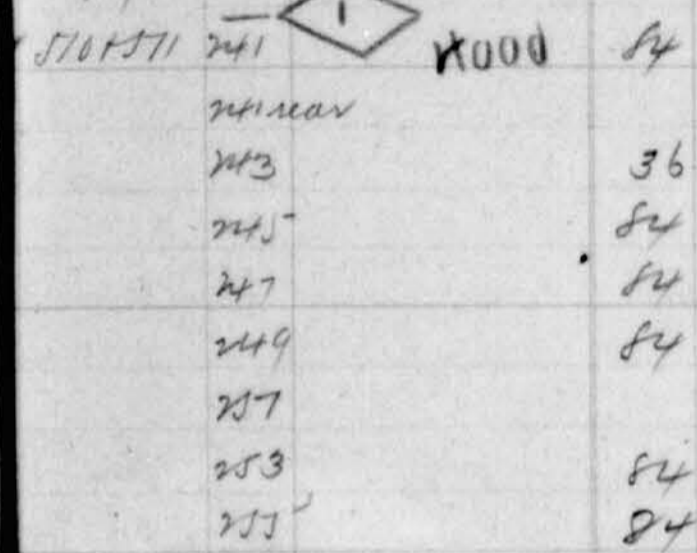 1
510+511 241 Wood 84
241 rear
243 36
245 84
247 84
249 84
257
253 84
255 84